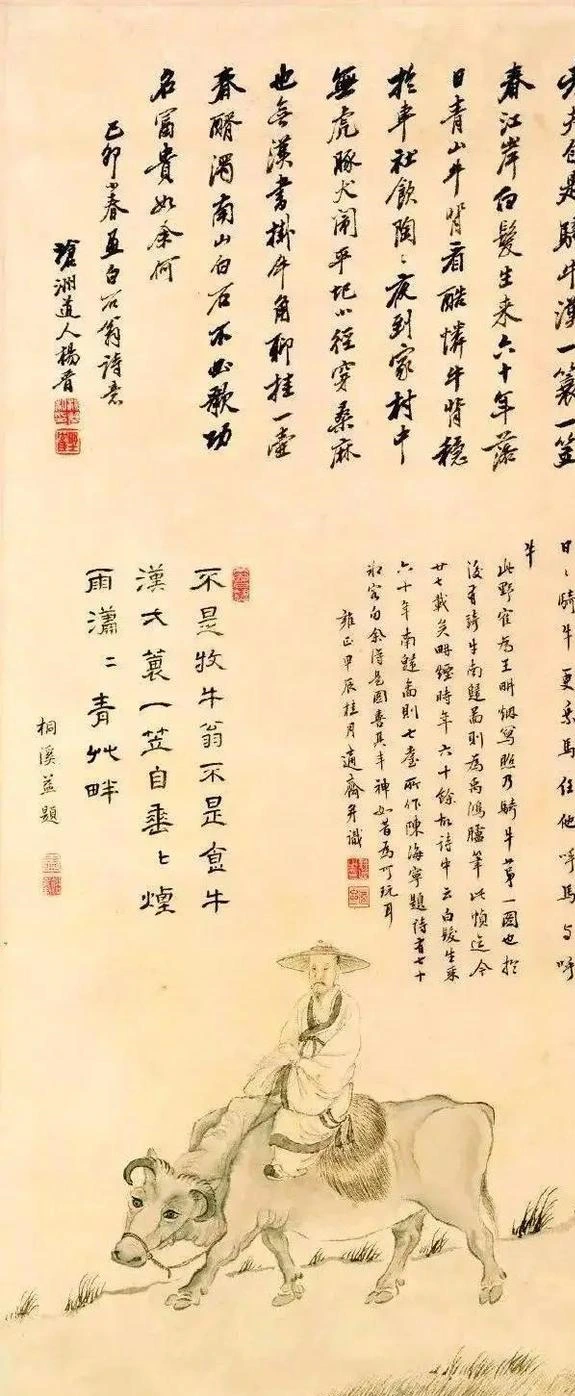 老夫自是騎牛漢一蓑一笠
春江岸白髮生来六十年落
日青山牛背看酷憐牛背穩
於車社飲陶〻夜到家村中
無虎豚犬鬧平圯小徑穿桑麻
也無漢書掛牛角聊挂一壺
春醑濁南山白石不必歌功
名富貴如余何
己卯小春並白石翁詩意
滄洲道人楊晋
日〻騎牛更乘馬任他呼馬与呼
牛
此野寉為王畊烟寫照乃騎牛第一圖也於
後有騎牛南馗啚則為禹鴻臚筆此幀迄今
廿七載矣畊煙時年六十餘故詩中云白髮生来
六十年南馗啚則七耋所作陳海寧題詩有七十
余得是圖喜其丰神如昔為可玩耳
雍正甲辰桂月適齋并識
不是牧牛翁不是食牛
漢弌蓑一笠自垂〻煙
雨瀟〻青艸畔
桐溪益題